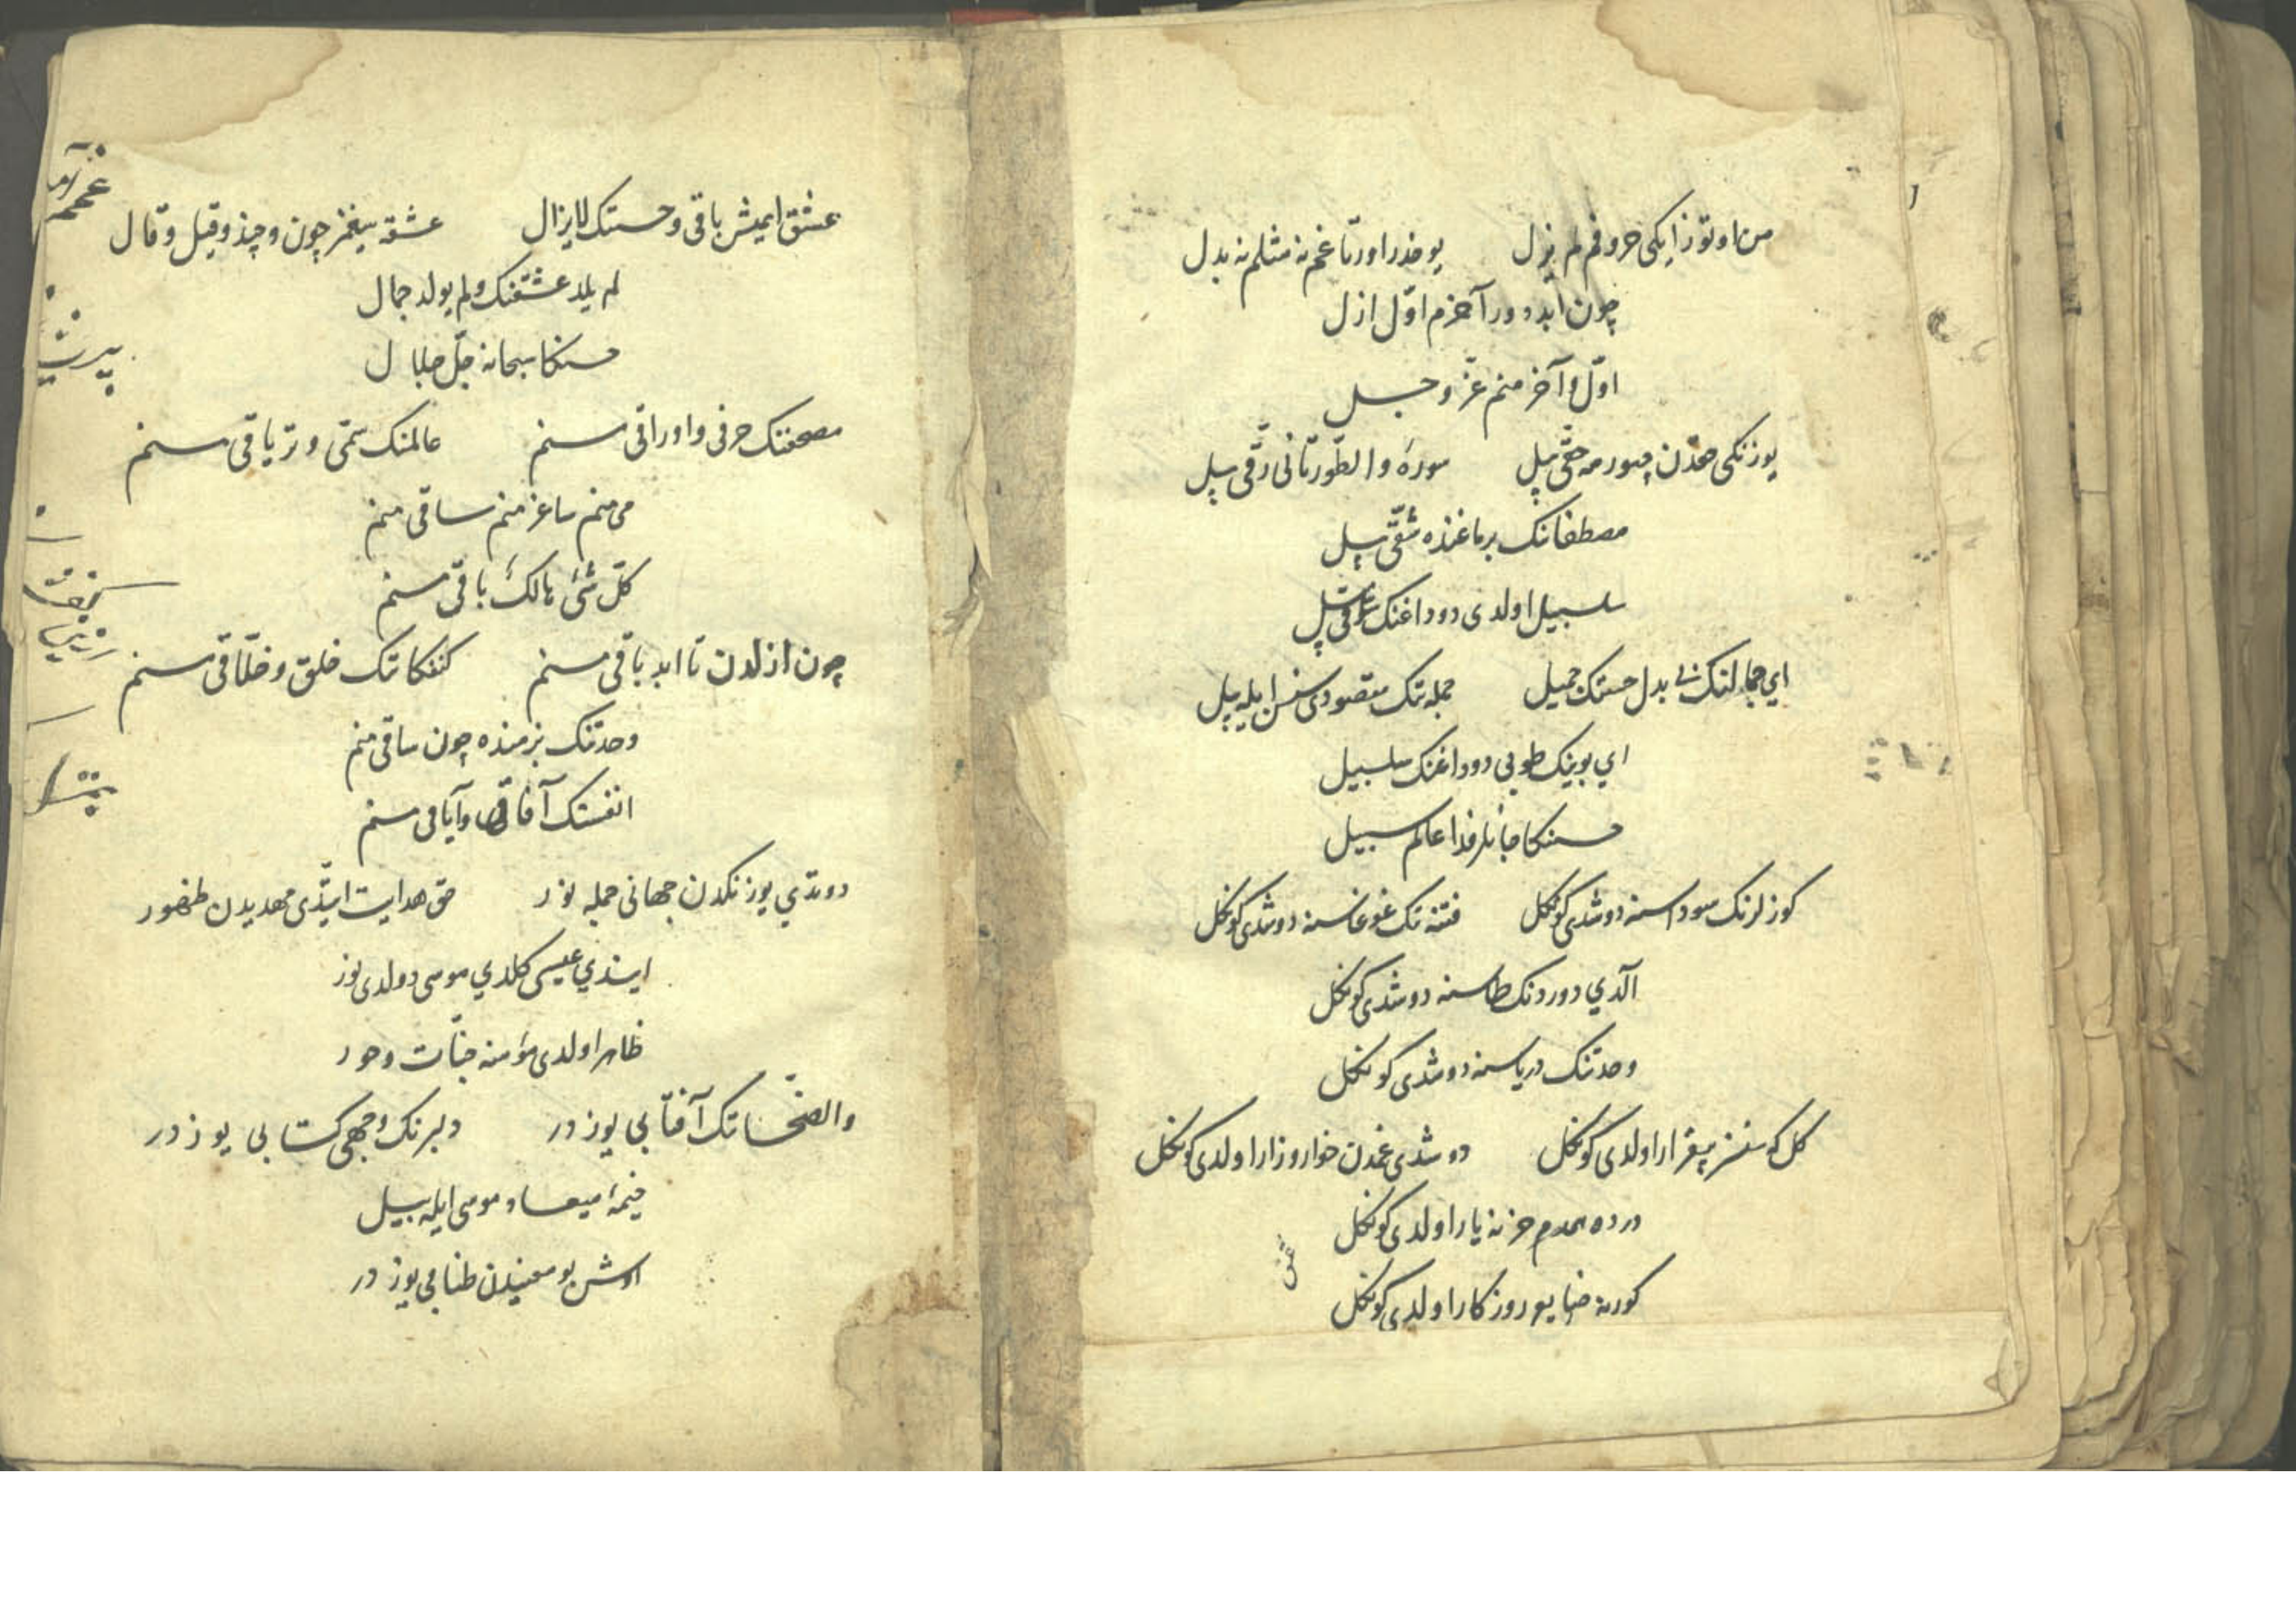 من اوتوز ایکی حروفم لم یزل یوخدر اورتاغم نه مثلم نه بدل
چون ابد دور آخرم اوّل ازل
اوّل و آخر منم عزّ وجل
یوزنکی حقدن چورمه حقّی بیل سورهٔ والطّور تانی رقّی بیل
مصطفانک برماغنده شقّی بیل
سلسبیل اولدی دوداغنک بیل
ای جمالنک بی بدل حسنک جمیل جمله نک مقصودی سنسن ایله بیل
ای بوینک طوبی دوداغنک سلسبیل
حسنکا جانلر فدا عالم سبیل
کوزلرنک سوداسنه دوشدی کونکل فتنه نک غوغاسنه دوشدی کونکل
آلدی دوردنک طاسنه دوشدی کونکل
وحدتنک دریاسنه دوشدی کونکل
کل که سنسز بیقرار اولدی کونکل دوشدی غمدن خوار و زار اولدی کونکل
درده همدم حزنه یار اولدی کونکل
کورنه خوا روزکار اولدی کونکل
عشق ایمیش باقی و حسنک لایزال عشقه سیغمز چون و چند و قیل و قال
لم یلد عشقنک ولم یولد جمال
حسنکا سبحانه جلّ جلال
مصحفنک حرفی و اوراقی سنم عالمنک سمّی و تریاقی سنم
می منم ساغر منم ساقی منم
کلّ شیٔ هالکٔ باقی سنم
چون ازلدن تا ابد باقی سنم کنفکانک خلق و خلّاقی سنم
وحدتنک بزمنده چون ساقی منم
انفسنک آفاق وآیاقی سنم
دوتدی یوزنکدن جهانی جمله نور حق هدایت ایتّدی مهدیدن ظهور
ایندی عیسی کلدی موسی دولدی نور
ظاهر اولدی مؤمنه جنّات وحور
والضّحانک آفتابی یوزدر دلبرنک وجهی کتابی یوزدر
خیمهٔ میعاد موسی ایله بیل
اوش بو معنیدن طنابی یوزدر